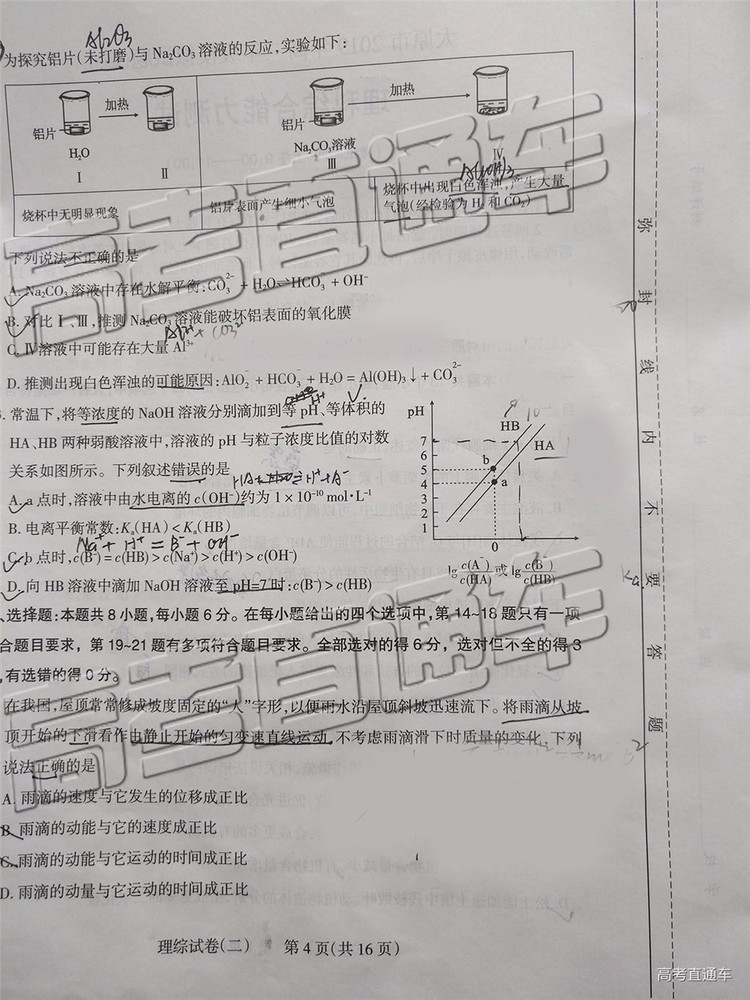 Al2O3
为探究铝片(未打磨)与 Na₂CO₃ 溶液的反应,实验如下:
铝片 加热
H₂O
Ⅰ Ⅱ
铝片 加热
Na₂CO₃溶液
Ⅲ Ⅳ
Al(OH)3
烧杯中无明显现象
铝片表面产生细小气泡
烧杯中出现白色浑浊,产生大量
气泡(经检验为 H₂ 和 CO₂)
下列说法不正确的是
A. Na₂CO₃ 溶液中存在水解平衡:CO₃²⁻ + H₂O⇌HCO₃⁻ + OH⁻
B. 对比Ⅰ、Ⅲ,推测 Na₂CO₃ 溶液能破坏铝表面的氧化膜
C. Ⅳ溶液中可能存在大量 Al³⁺
D. 推测出现白色浑浊的可能原因:AlO₂⁻ + HCO₃⁻ + H₂O = Al(OH)₃↓ + CO₃²⁻
常温下,将等浓度的 NaOH 溶液分别滴加到等 pH、等体积的
HA、HB 两种弱酸溶液中,溶液的 pH 与粒子浓度比值的对数
关系如图所示。下列叙述错误的是
A. a 点时,溶液中由水电离的 c(OH⁻)约为 1 × 10⁻¹⁰ mol·L⁻¹
B. 电离平衡常数:Kₐ(HA) < Kₐ(HB)
Na⁺ + H⁺ = B⁻ + OH⁻
C. b 点时,c(B⁻) = c(HB) > c(Na⁺) > c(H⁺) > c(OH⁻)
D. 向 HB 溶液中滴加 NaOH 溶液至 pH=7 时:c(B⁻) > c(HB)
pH
HB
HA
7
6
5
4
3
2
1
b
a
0
lg c(A⁻)/c(HA) 或 lg c(B⁻)/c(HB)
、选择题:本题共 8 小题,每小题 6 分。在每小题给出的四个选项中,第 14~18 题只有一项
合题目要求,第 19~21 题有多项符合题目要求。全部选对的得 6 分,选对但不全的得 3
,有选错的得 0 分。
在我国,屋顶常常修成坡度固定的“人”字形,以便雨水沿屋顶斜坡迅速流下。将雨滴从坡
顶开始的下滑看作由静止开始的匀变速直线运动,不考虑雨滴滑下时质量的变化,下列
说法正确的是
A. 雨滴的速度与它发生的位移成正比
B. 雨滴的动能与它的速度成正比
C. 雨滴的动能与它运动的时间成正比
D. 雨滴的动量与它运动的时间成正比
理综试卷(二) 第 4 页(共 16 页)
弥 封 线 内 不 要 答 题
高考直通车
高考直通车
高考直通车